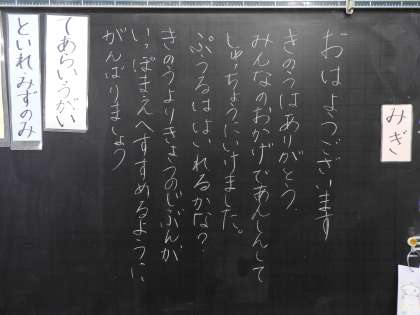 みぎ
おはようございます
きのうはありがとう
みんなのおかげであんしんして
しゅっちょうにいけました。
ぷうるははいれるかな?
きのうよりきょうのじぶんが
いっぽまえへすすめるように
がんばりましょう
てあらい・うがい
といれ・みずのみ